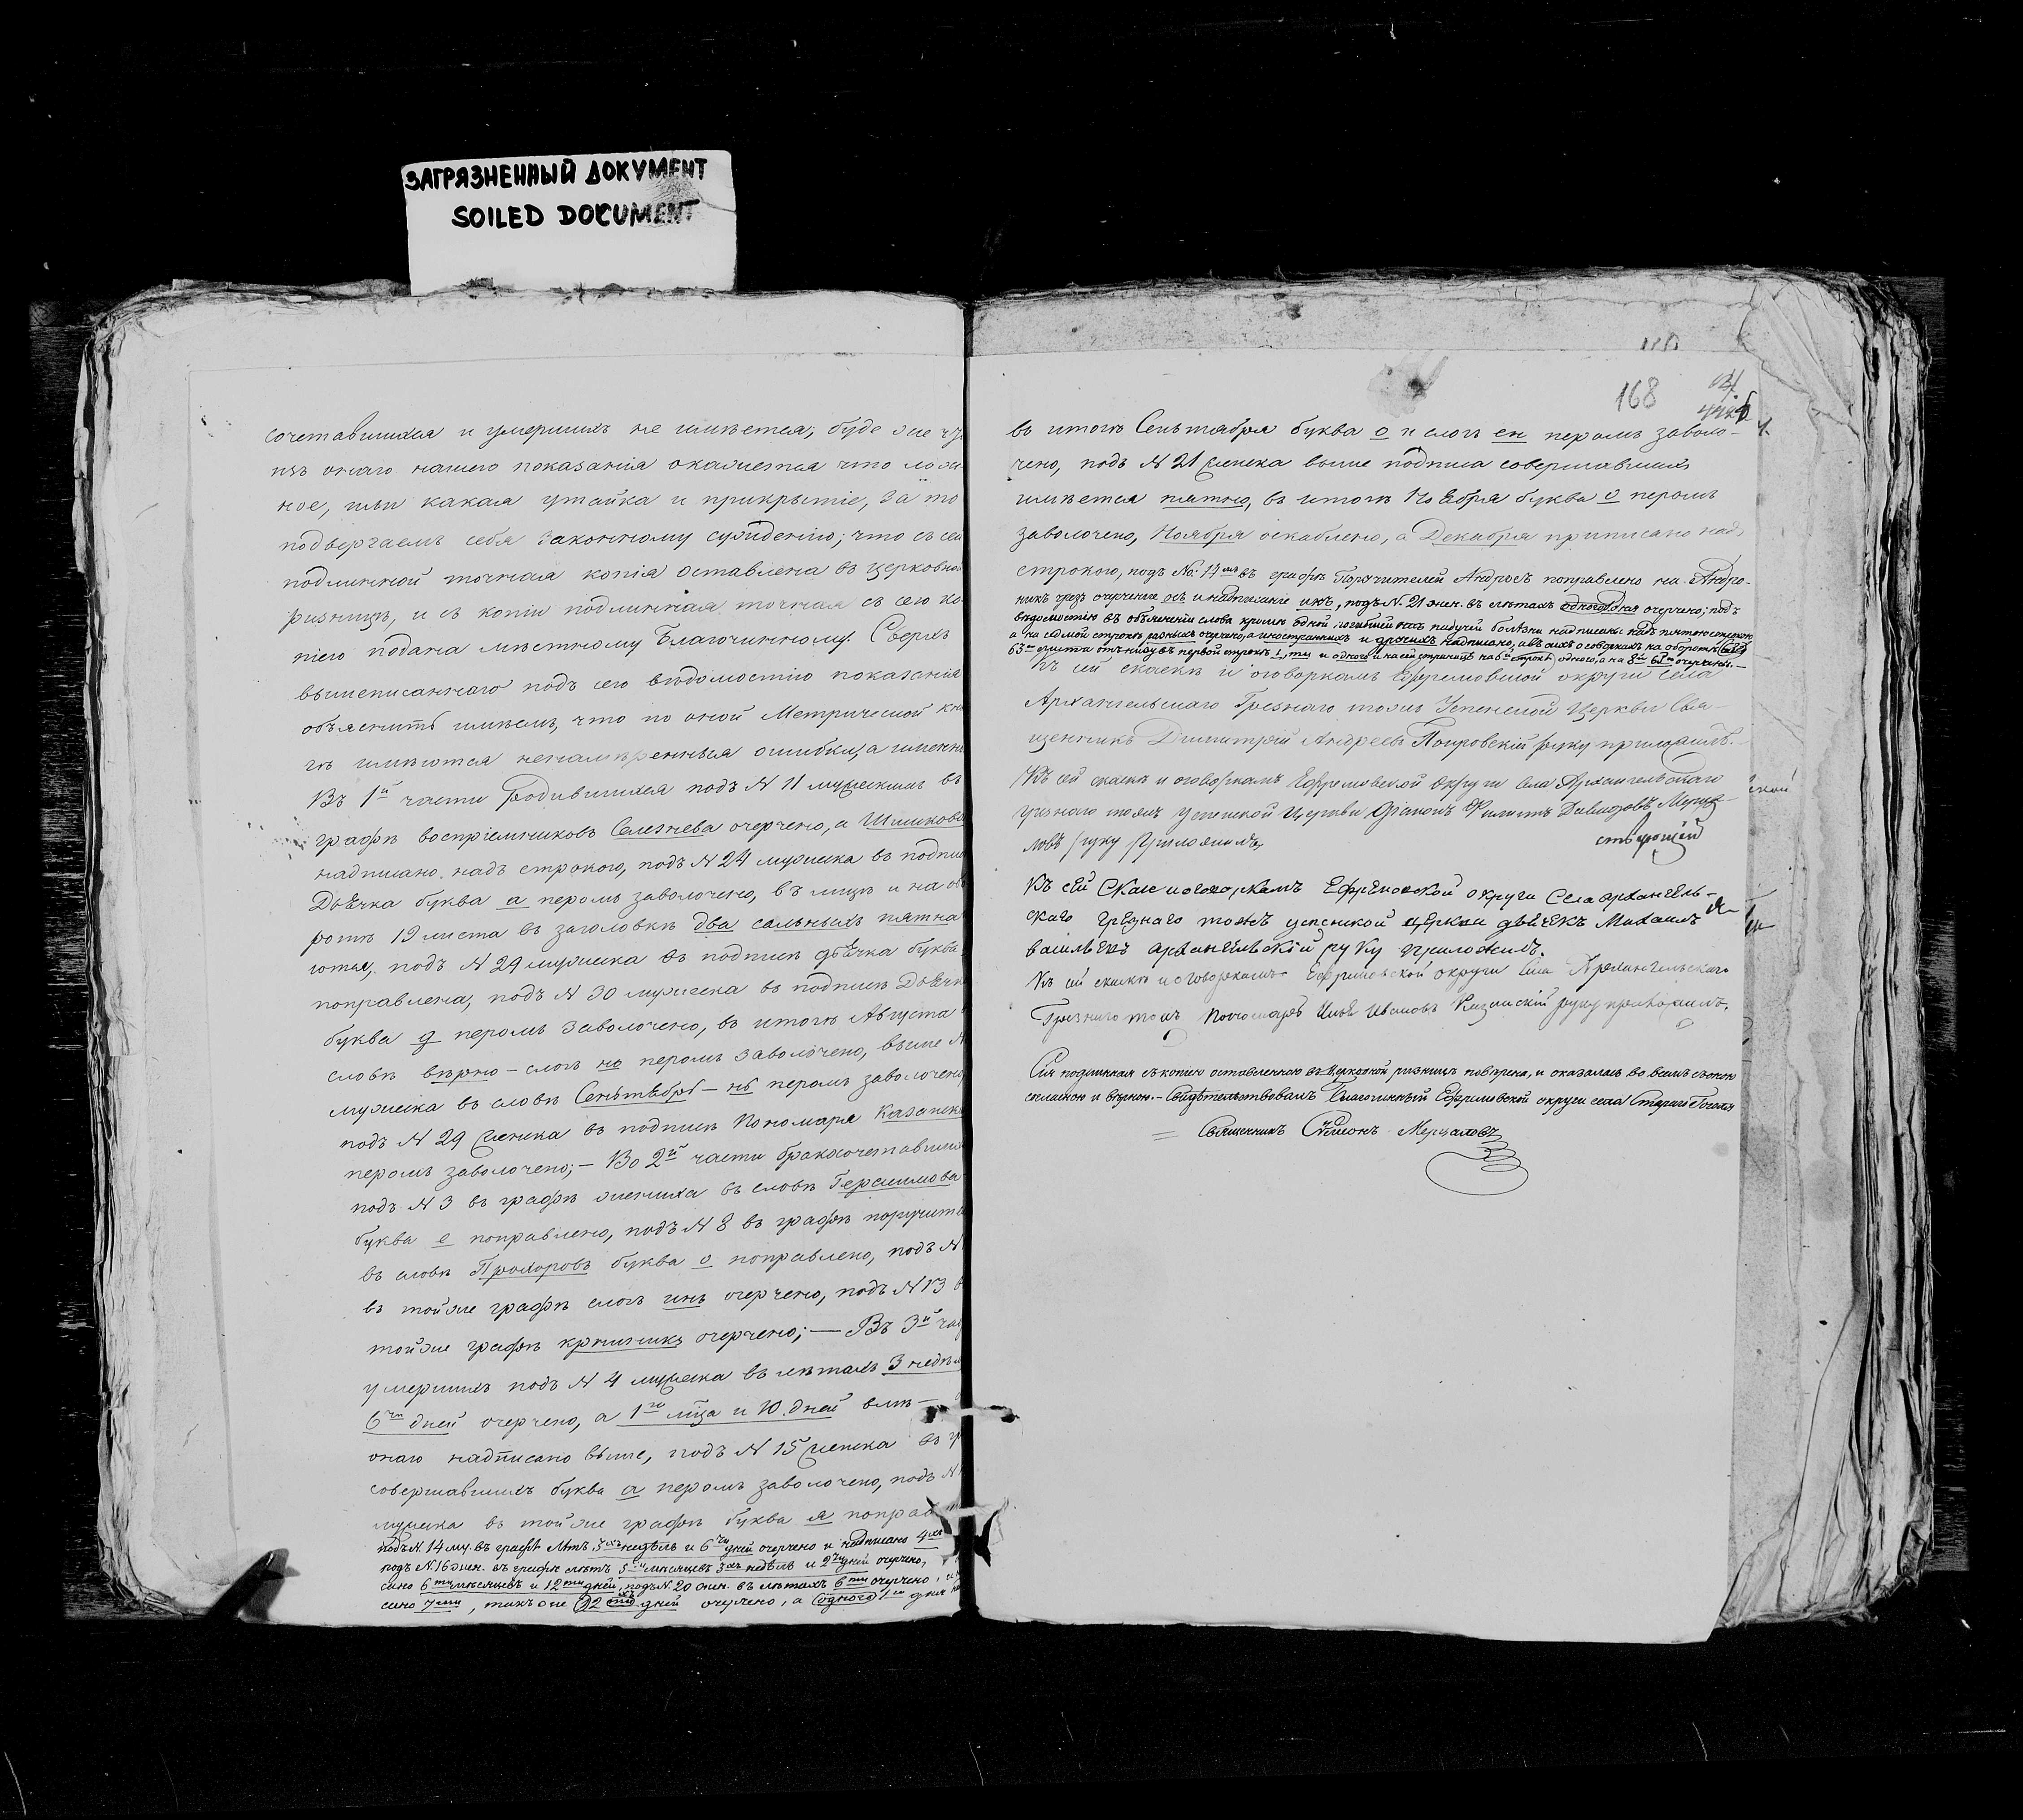 ЗАГРЯЗНЕННЫЙ ДОКУМЕНТ
SOILED DOCUMENT
сочетавшихся и умершихъ не имѣется; буде же
изъ онаго нашего показанія окажется что
ное, или какая утайка и прикрытіе, за то
подвергаемъ себя законному сужденію; что съ сей
подлинной точная копія оставлена въ церковной
ризницѣ, и съ копіи подлинная точная съ сего
подана мѣстному Благочинному. Сверхъ
вышеписаннаго подъ сею вѣдомостію показанія
объяснить имѣемъ, что по оной Метрической
имѣются ненамѣренныя ошибки, а именно
Въ 1й части родившихся подъ № 11 мужескимъ въ
графѣ воспріемниковъ Селезнева очерчено, а Шишкова
надписано надъ строкою, подъ № 24 мужеска въ подписи
Дьячка буква а перомъ заволочено, въ лицѣ и на обо
ротѣ 19 листа въ заголовкѣ два сальныхъ пятна
подъ № 29 мужеска въ подписи дьячка буква
поправлена, подъ № 30 мужеска въ подписи Дьячка
буква д перомъ заволочено, въ итогѣ Августа
словѣ вѣрно – слогъ но перомъ заволочено, выше
мужеска въ словѣ Сентября – нь перомъ заволочено
подъ № 29 женска въ подписи Пономаря Казанск
перомъ заволочено; – Во 2й части бракосочетавшихся
подъ № 3 въ графѣ жениха въ словѣ Герасимова
буква е поправлено, подъ № 8 въ графѣ поручит
въ словѣ Прохоровъ буква о поправлено, подъ №
въ той же графѣ слогъ инъ очерчено, подъ № 13 в
той же графѣ очерчено; – Въ 3й час
умершихъ подъ № 4 мужеска въ лѣтахъ 3 недѣли
6ти дней очерчено, а 1го мца и 10 дней
онаго надписано выше, подъ № 15 женска въ гр
совершавшихъ буква а перомъ заволочено, подъ №
мужеска въ той же графѣ буква я поправ
подъ N. 14 му. въ графѣ лѣтъ 3хъ недѣль и 6ти дней очерчено и надписано 4хъ
подъ N. 16 жен. въ графѣ лѣтъ 5ти мѣсяцевъ 3хъ недѣль и 2хъ дней очерчено,
сано 6ти мѣсяцевъ и 12ти дней, подъ N. 20 жен. въ лѣтахъ 6ти очерчено, и
сано 7ми, такъ же 22хъ дней очерчено, а одного 1го дня
168
въ итогѣ Сентября буква о и слогъ ен перомъ заволо-
чено, подъ № 21 женска выше подписа совершавшихъ
имѣется пятно, въ итогѣ Ноября буква о перомъ
заволочено, Ноября оскаблено, а Декабря приписано надъ
строкою, подъ No. 14мъ въ графѣ Поручителей Андрей поправлено на Андро-
никъ чрезъ очерченіе и надписаніе икъ, подъ N. 21 жен. въ лѣтахъ одного дня очерчено; подъ
вѣдомостію въ объясненіи слова кромѣ одной погибшей отъ падучей болѣзни надписаны надъ пятою строкою
а на седмой строкѣ разныхъ очерчено, а иностранныхъ и другихъ надписано, а въ сихъ оговоркахъ на оборотѣ
65го листа отъ низу въ первой строкѣ 1, ти и одного и на сей страницѣ на 6й строкѣ одного, а на 8й 61го очерчены. –
Къ сей скаскѣ и оговоркамъ Ефремовской округи села
Архангельскаго Грезнаго тожъ Успенской Церкви Свя-
щенникъ Димитрій Андреевъ Покровскій руку приложилъ.
Къ сей скаскѣ и оговоркамъ Ефремовской округи села Архангельскаго
Грезнаго тожъ Успенской Церкви Діаконъ Филиппъ Давидовъ Мерца-
ловъ руку приложилъ
Къ сей Скаске и оговоркамъ Ефремовской округи Села архангель-
скаго грезнаго тожъ успенской церкви дьячекъ Михаилъ
васильевъ архангельскій руку приложилъ.
Къ сей скаскѣ и оговоркамъ Ефремовской округи села Архангельскаго
Грезнаго тожъ Пономарь Илья Ивановъ Казанскій руку приложилъ.
Сія подлинная съ копіею оставленною въ Церковной ризницѣ повѣрена, и оказалась во всемъ съ оною
согласною и вѣрною. – Свидѣтельствовалъ Благочинный Ефремовской округи села Стараго Гоголя
Священникъ Симеонъ Мерцаловъ